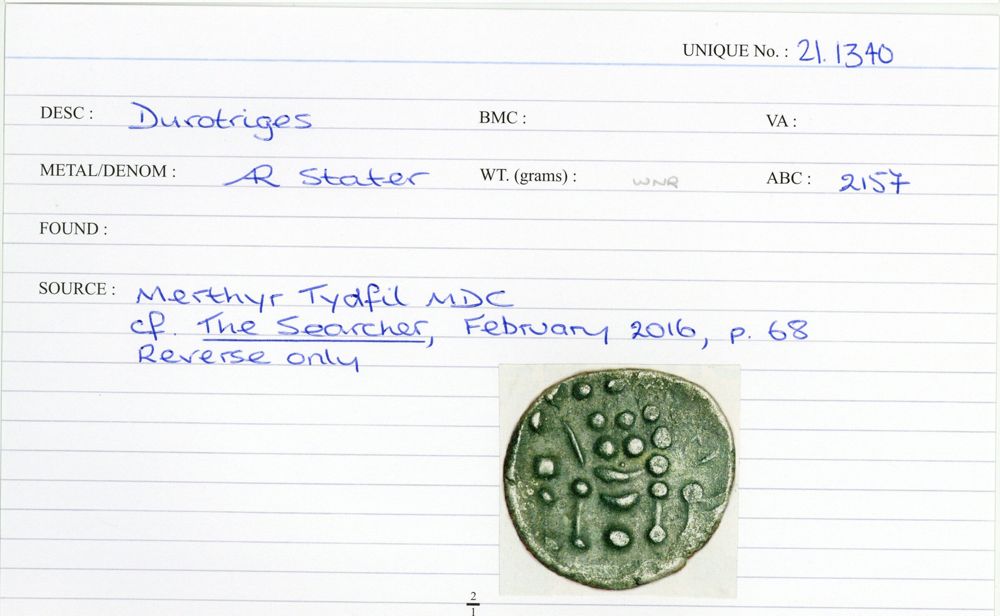 UNIQUE No. : 21.1340
DESC : Durotriges BMC : VA :
METAL/DENOM : AR Stater WT. (grams) : WNR ABC : 2157
FOUND :
SOURCE : Merthyr Tydfil MDC
cf. The Searcher, February 2016, p. 68
Reverse only
2
1